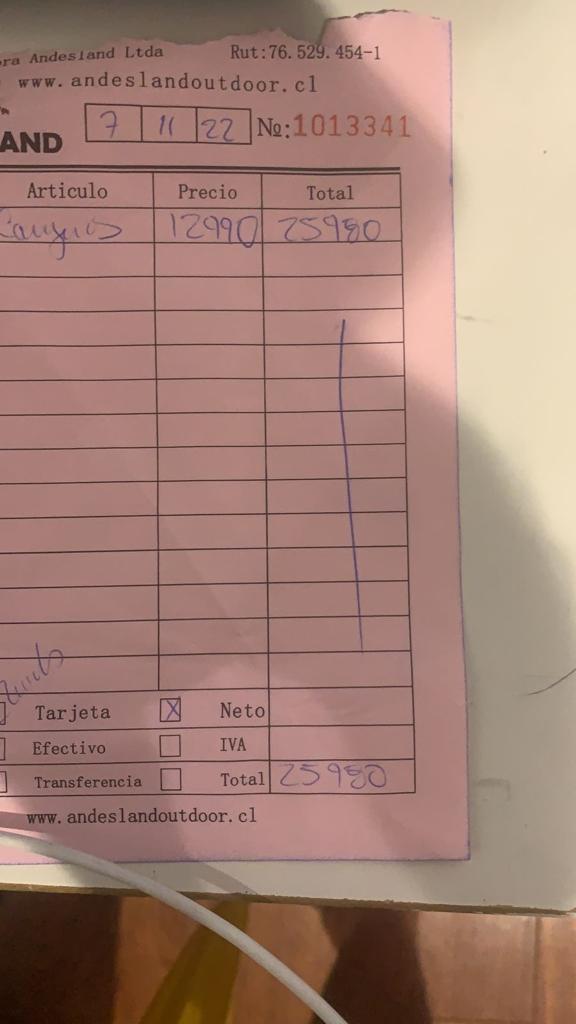 ra Andesland Ltda Rut:76.529.454-1
www.andeslandoutdoor.cl
AND 7 11 22 №:1013341
Articulo Precio Total
12990 25980
Tarjeta X Neto
Efectivo IVA
Transferencia Total 25980
www.andeslandoutdoor.cl